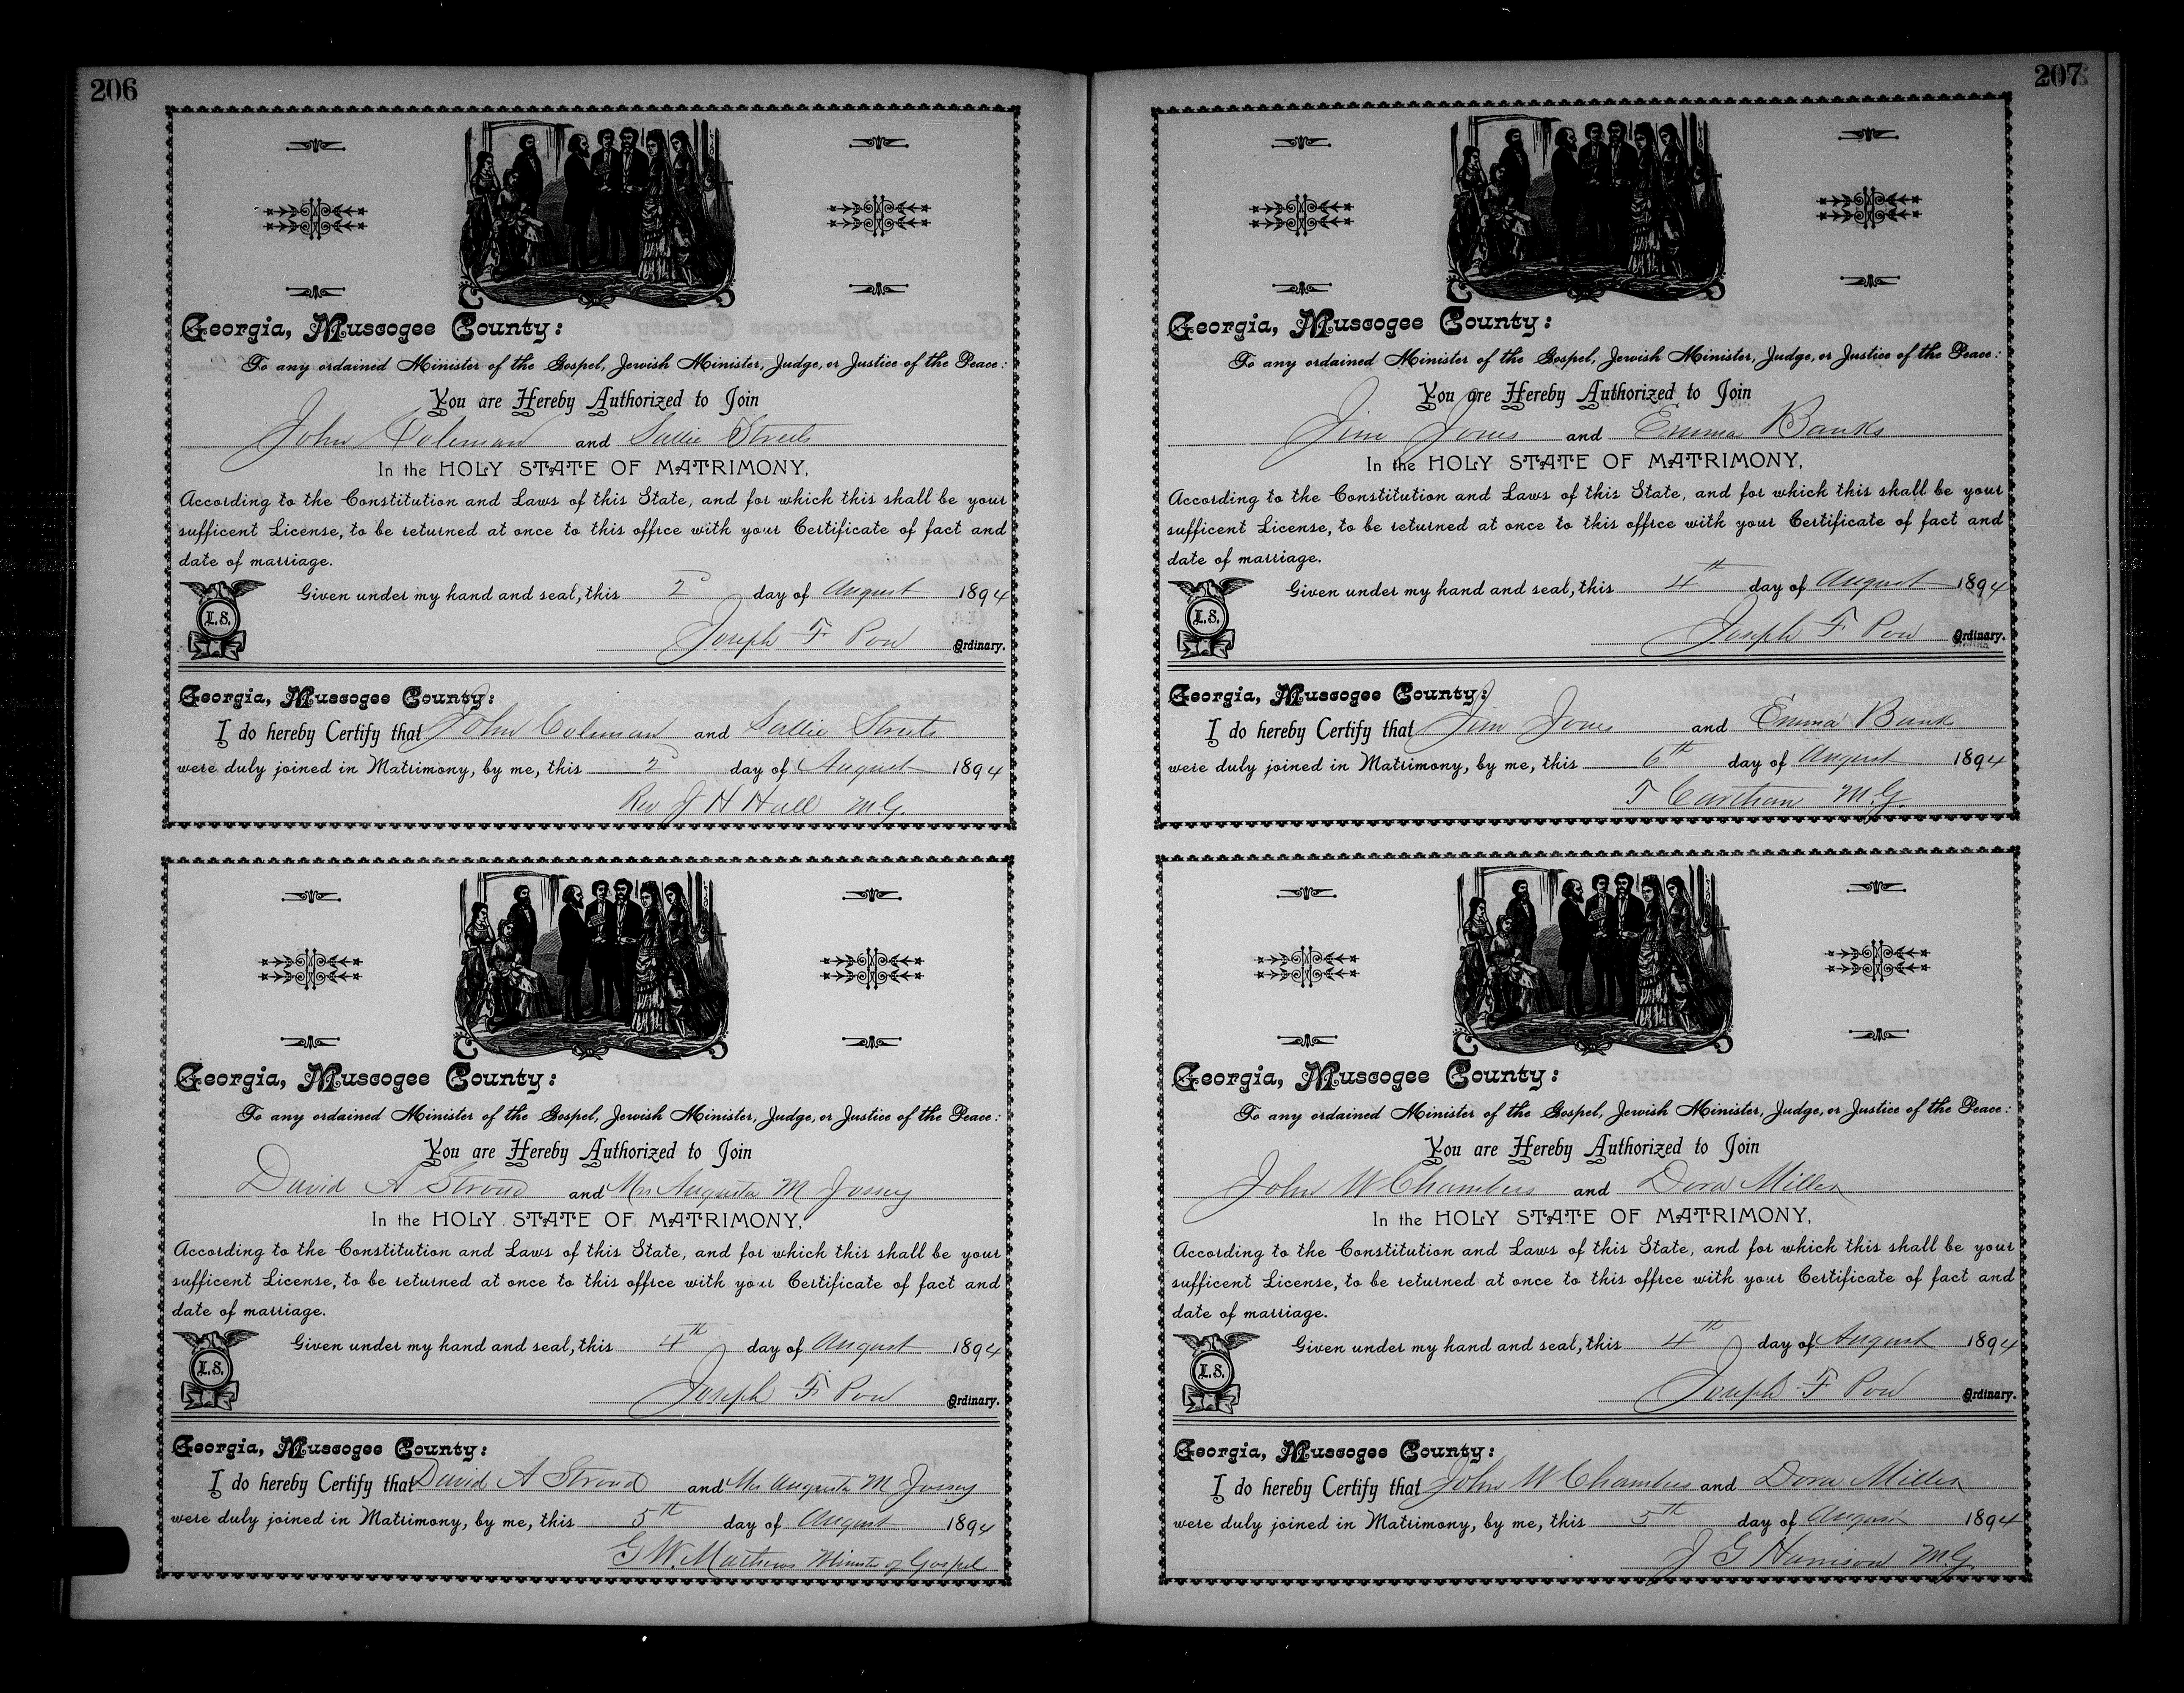 206
Georgia, Muscogee County:
To any ordained Minister of the Gospel, Jewish Minister, Judge, or Justice of the Peace:
You are Hereby Authorized to Join
John Coleman and Sallie Streets
In the HOLY STATE OF MATRIMONY,
According to the Constitution and Laws of this State, and for which this shall be your
sufficent License, to be returned at once to this office with your Certificate of fact and
date of marriage.
L.S.
Given under my hand and seal, this 2 day of August 1894
Joseph F Pou Ordinary.
Georgia, Muscogee County:
I do hereby Certify that John Coleman and Sallie Streets
were duly joined in Matrimony, by me, this 2 day of August 1894
Rev J H Hall M.G.
Georgia, Muscogee County:
To any ordained Minister of the Gospel, Jewish Minister, Judge, or Justice of the Peace:
You are Hereby Authorized to Join
David A Stroud and Mrs Augusta M Jossey
In the HOLY STATE OF MATRIMONY,
According to the Constitution and Laws of this State, and for which this shall be your
sufficent License, to be returned at once to this office with your Certificate of fact and
date of marriage.
L.S.
Given under my hand and seal, this 4th day of August 1894
Joseph F Pou Ordinary.
Georgia, Muscogee County:
I do hereby Certify that David A Stroud and Mrs Augusta M Jossey
were duly joined in Matrimony, by me, this 5th day of August 1894
G W. Mathews Minister of Gospel
207
Georgia, Muscogee County:
To any ordained Minister of the Gospel, Jewish Minister, Judge, or Justice of the Peace:
You are Hereby Authorized to Join
Jim Jones and Emma Banks
In the HOLY STATE OF MATRIMONY,
According to the Constitution and Laws of this State, and for which this shall be your
sufficent License, to be returned at once to this office with your Certificate of fact and
date of marriage.
L.S.
Given under my hand and seal, this 4th day of August 1894
Joseph F Pou Ordinary.
Georgia, Muscogee County:
I do hereby Certify that Jim Jones and Emma Bank
were duly joined in Matrimony, by me, this 6th day of August 1894
T M.G.
Georgia, Muscogee County:
To any ordained Minister of the Gospel, Jewish Minister, Judge, or Justice of the Peace:
You are Hereby Authorized to Join
John W Chambers and Dora Miller
In the HOLY STATE OF MATRIMONY,
According to the Constitution and Laws of this State, and for which this shall be your
sufficent License, to be returned at once to this office with your Certificate of fact and
date of marriage.
L.S.
Given under my hand and seal, this 4th day of August 1894
Joseph F Pou Ordinary.
Georgia, Muscogee County:
I do hereby Certify that John W Chambers and Dora Miller
were duly joined in Matrimony, by me, this 5th day of August 1894
J G Harrison M.G.